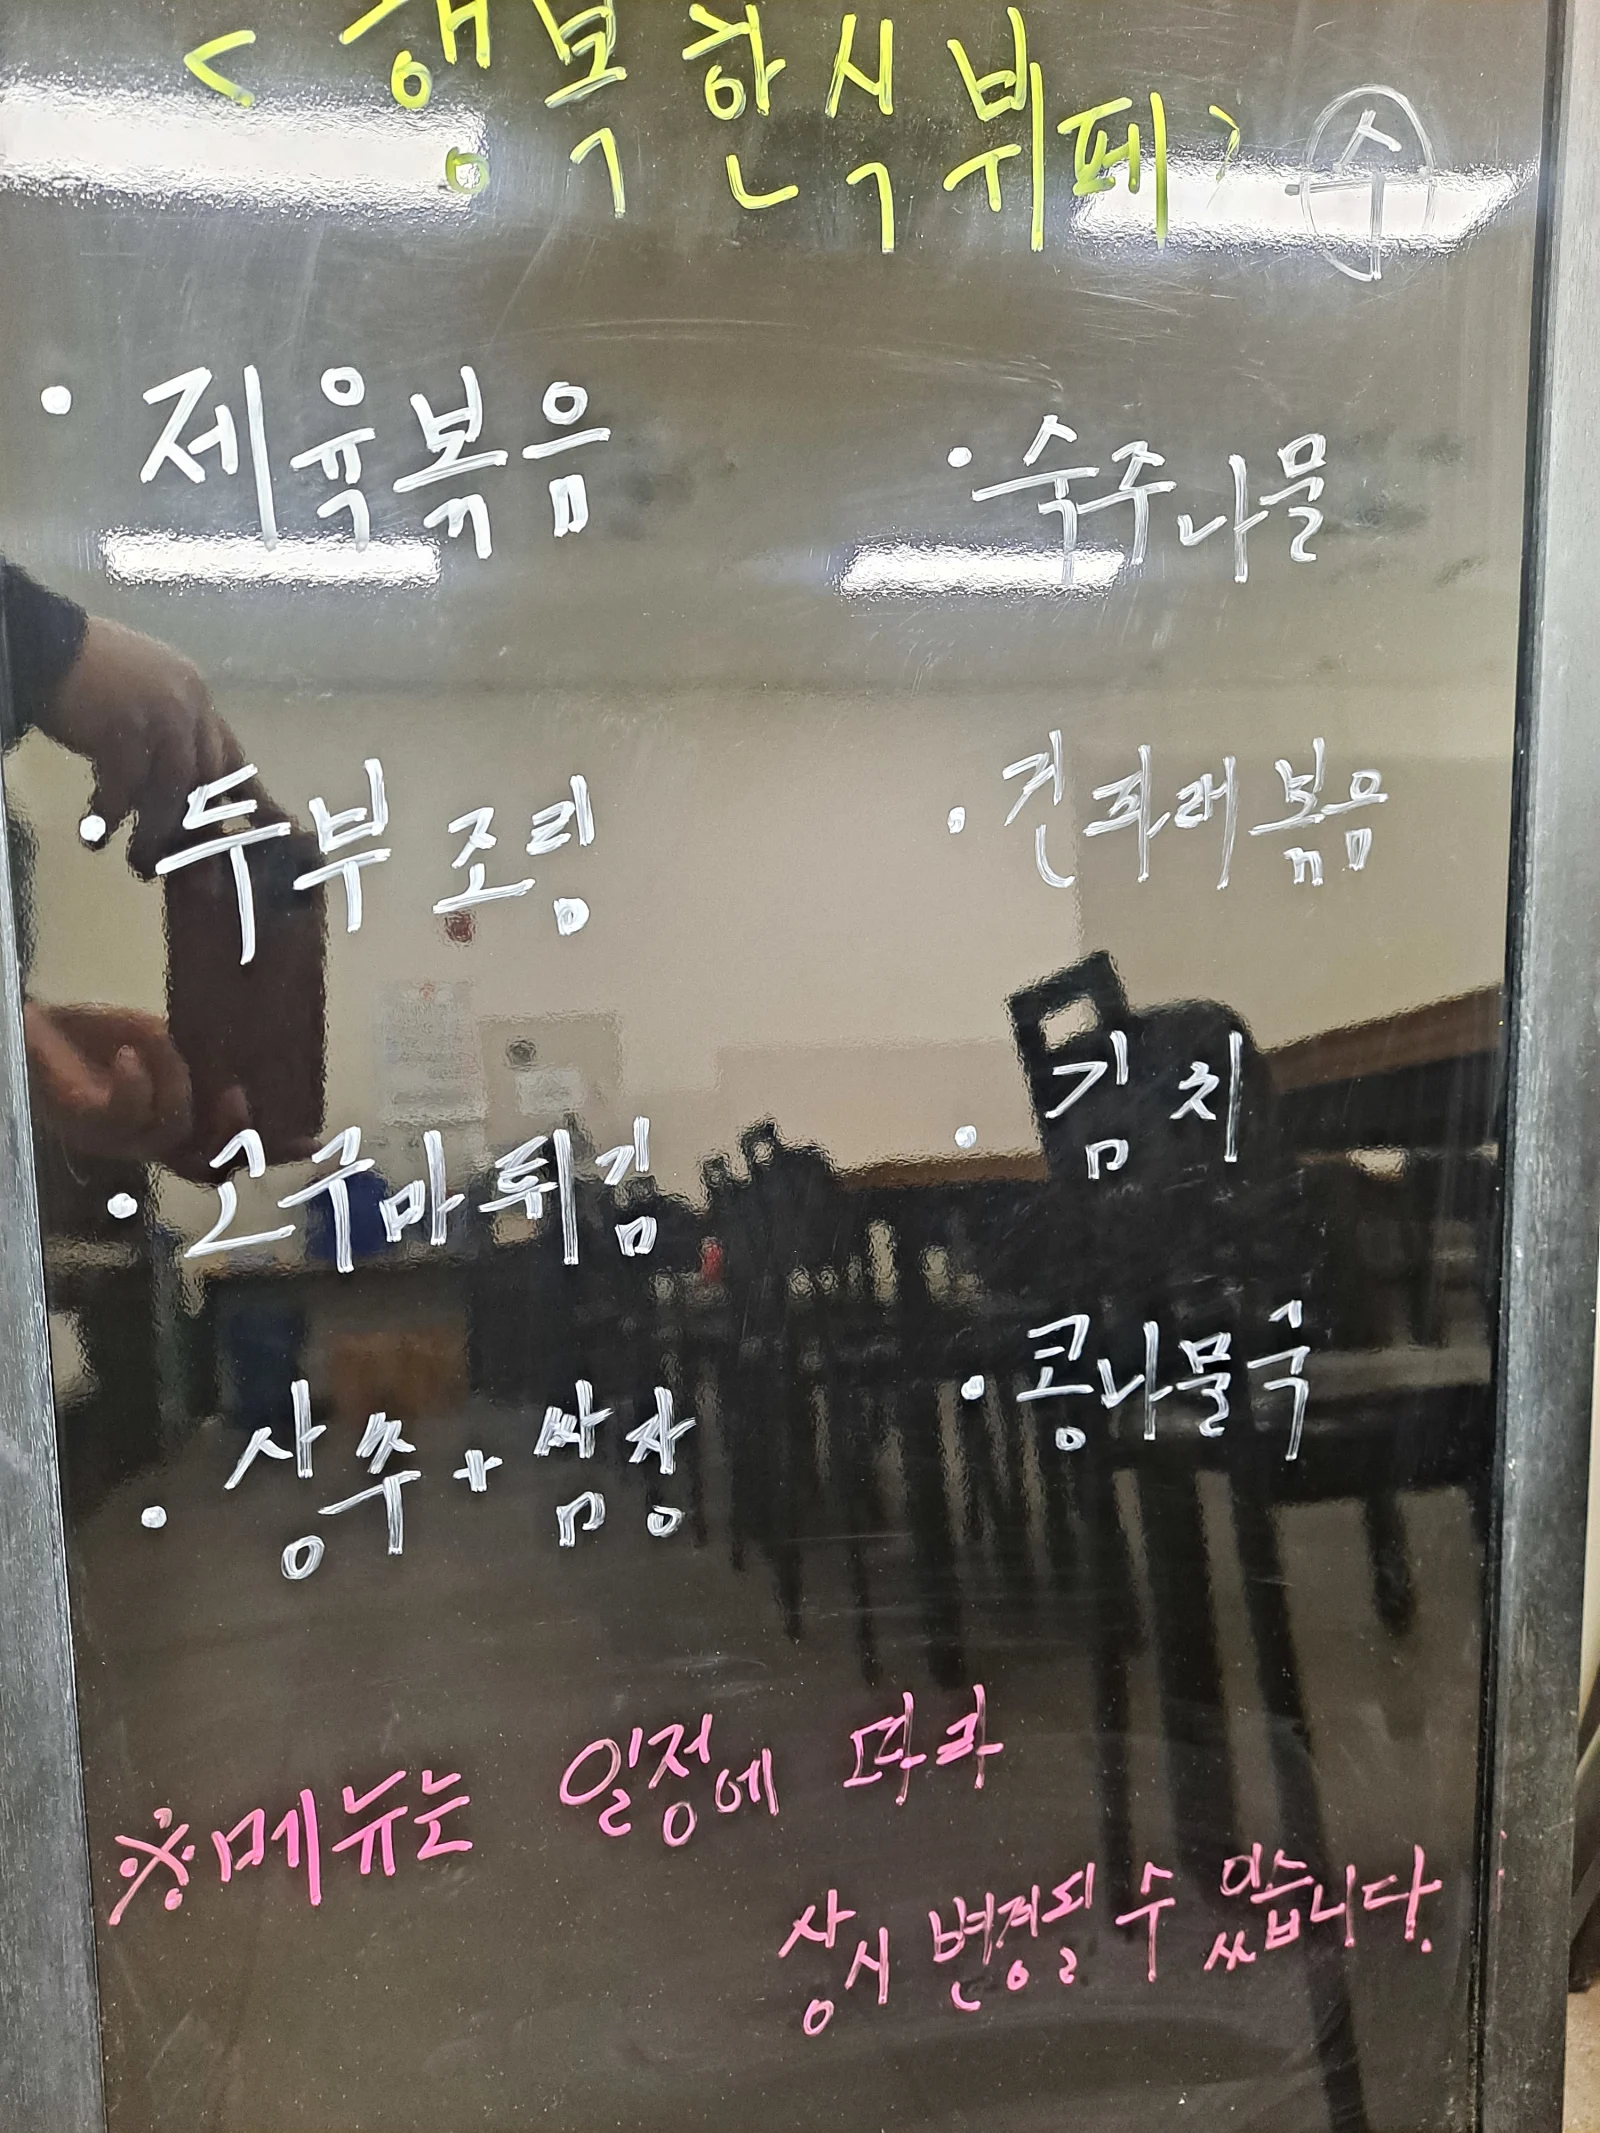 <행복한식뷔페> 수
• 제육볶음
• 숙주나물
• 두부조림
• 건파래볶음
• 고구마튀김
• 김치
• 상추+쌈장
• 콩나물국
※메뉴는 일정에 따라
상시 변경될 수 있습니다.